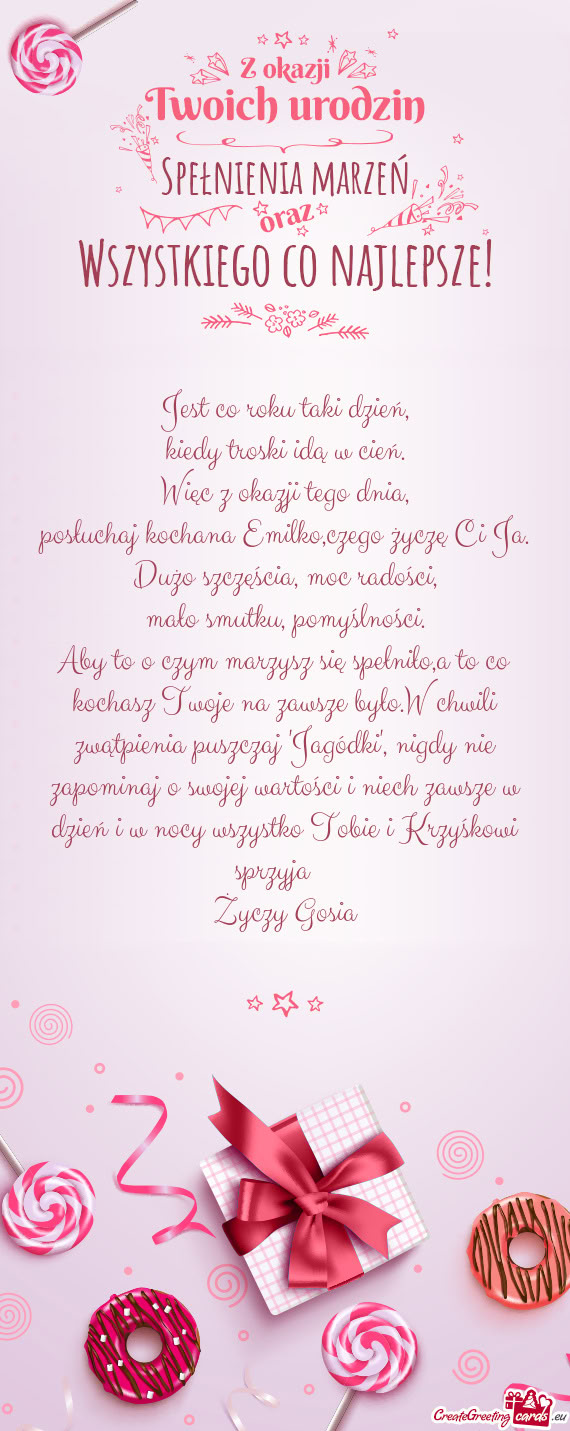 Z okazji
Twoich urodzin
Spełnienia marzeń
oraz
Wszystkiego co najlepsze!
Jest co roku taki dzień,
kiedy troski idą w cień.
Więc z okazji tego dnia,
posłuchaj kochana Emilko,czego życzę Ci Ja.
Dużo szczęścia, moc radości,
mało smutku, pomyślności.
Aby to o czym marzysz się spełniło,a to co
kochasz Twoje na zawsze było.W chwili
zwątpienia puszczaj 'Jagódki', nigdy nie
zapominaj o swojej wartości i niech zawsze w
dzień i w nocy wszystko Tobie i Krzyśkowi
sprzyja
Życzy Gosia
CreateGreeting cards .eu